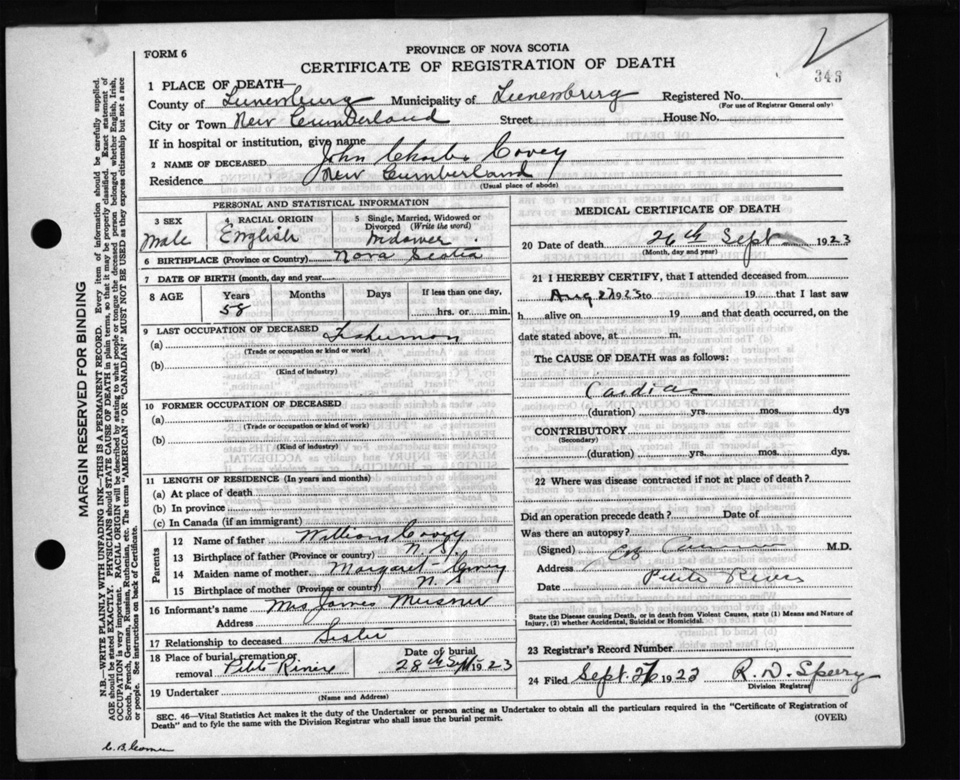 FORM 6
PROVINCE OF NOVA SCOTIA
CERTIFICATE OF REGISTRATION OF DEATH
343
1 PLACE OF DEATH—
County of Lunenburg Municipality of Lunenburg Registered No.
(For use of Registrar General only)
City or Town New Cumberland Street House No.
If in hospital or institution, give name
2 NAME OF DECEASED John Charles Covey
Residence New Cumberland
(Usual place of abode)
PERSONAL AND STATISTICAL INFORMATION
3 SEX 4 RACIAL ORIGIN 5 Single, Married, Widowed or Divorced (Write the word)
Male English Widower
6 BIRTHPLACE (Province or Country) Nova Scotia
7 DATE OF BIRTH (month, day and year)
8 AGE Years Months Days If less than one day,
58 hrs. or min.
9 LAST OCCUPATION OF DECEASED
(a) Fisherman
(Trade or occupation or kind or work)
(b)
(Kind of industry)
10 FORMER OCCUPATION OF DECEASED
(a)
(Trade or occupation or kind or work)
(b)
(Kind of industry)
11 LENGTH OF RESIDENCE (In years and months)
(a) At place of death
(b) In province
(c) In Canada (if an immigrant)
Parents
12 Name of father William Covey
13 Birthplace of father (Province or country) N. S.
14 Maiden name of mother Margaret
15 Birthplace of mother (Province or country) N. S
16 Informant's name Mrs James Meisner
Address
17 Relationship to deceased Sister
18 Place of burial, cremation or removal Petite Riviere Date of burial 28th Sept 1923
19 Undertaker
(Name and Address)
MEDICAL CERTIFICATE OF DEATH
20 Date of death 26th Sept 1923
(Month, day and year)
21 I HEREBY CERTIFY, that I attended deceased from
Aug 27 1923 to 19 that I last saw
h alive on 19 and that death occurred, on the
date stated above, at m.
The CAUSE OF DEATH was as follows:
Cardiac
(duration) yrs. mos. dys
CONTRIBUTORY
(Secondary)
(duration) yrs. mos. dys.
22 Where was disease contracted if not at place of death?
Did an operation precede death? Date of
Was there an autopsy?
(Signed) M.D.
Address
Date Petite River
State the Disease causing Death, or in death from Violent Causes, state (1) Means and Nature of Injury, (2) whether Accidental, Suicidal or Homicidal.
23 Registrar's Record Number
24 Filed Sept. 1923 R. D. Sperry
Division Registrar
SEC. 46—Vital Statistics Act makes it the duty of the Undertaker or person acting as Undertaker to obtain all the particulars required in the "Certificate of Registration of
Death" and to fyle the same with the Division Registrar who shall issue the burial permit. (OVER)
MARGIN RESERVED FOR BINDING
N.B.—WRITE PLAINLY WITH UNFADING INK—THIS IS A PERMANENT RECORD. Every item of information should be carefully supplied.
AGE should be stated EXACTLY. PHYSICIANS should STATE CAUSE OF DEATH in plain terms, so that it may be properly classified. Exact statement of
OCCUPATION is very important. RACIAL ORIGIN will be described by stating to what people or tongue the deceased person belonged whether English, Irish,
Scotch, French, German, Russian, Ruthenian, etc. The terms "AMERICAN" OR "CANADIAN" MUST NOT BE USED as they express citizenship but not a race
or people. See instructions on back of Certificate.